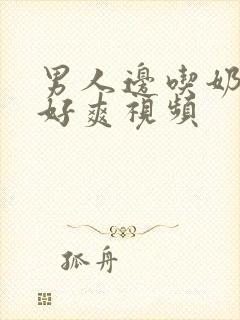 男人邊喫奶
好爽視頻
孤舟